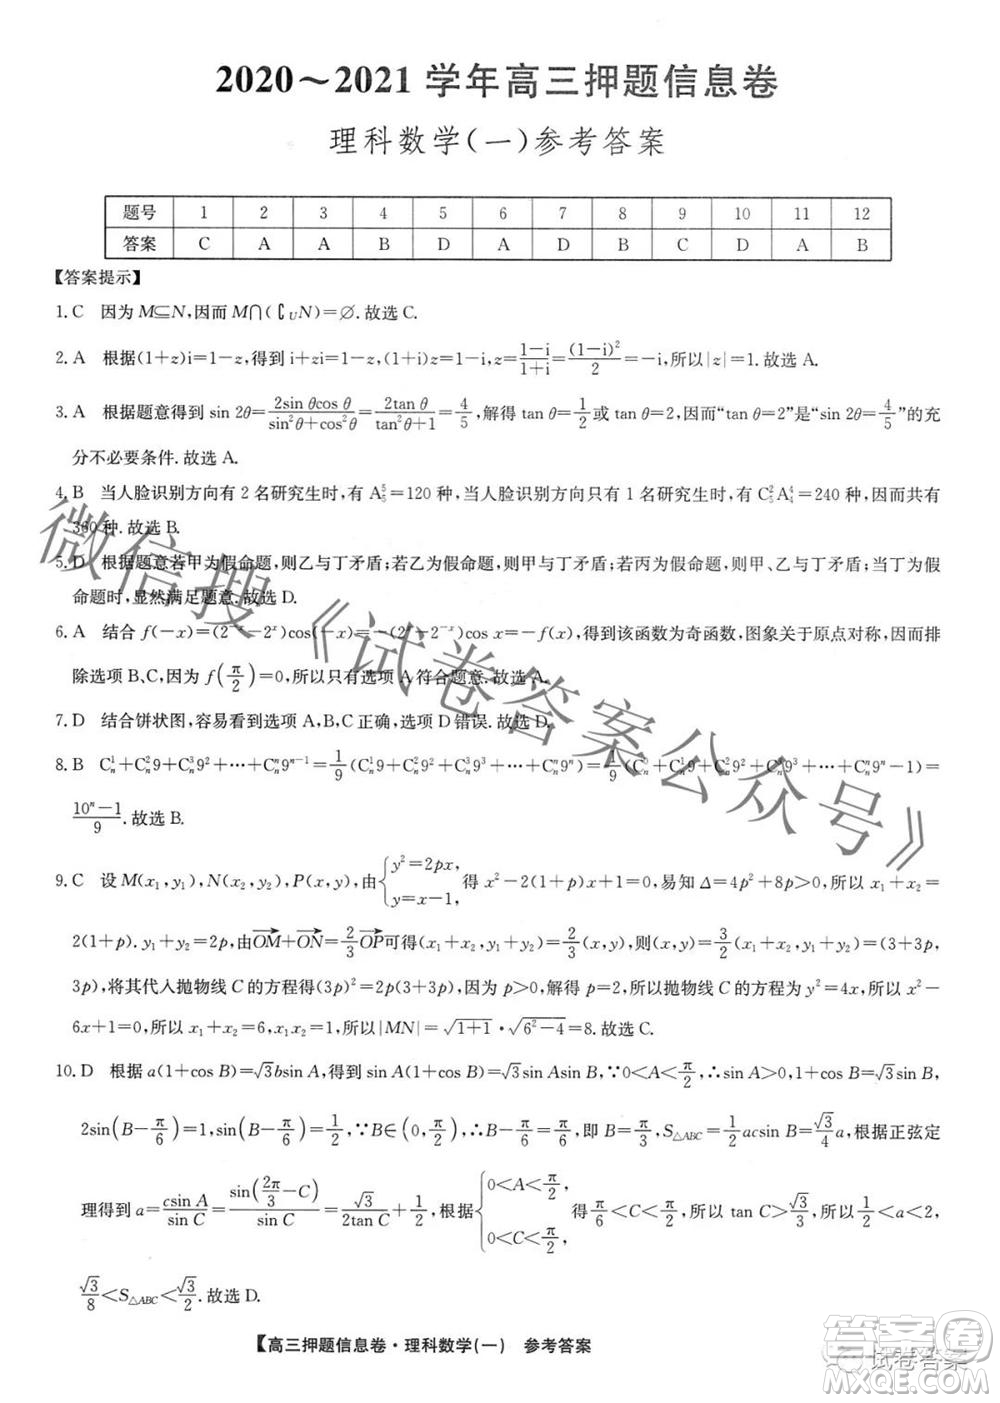 2020～2021学年高三押题信息卷
理科数学(一)参考答案
题号 1 2 3 4 5 6 7 8 9 10 11 12
答案 C A A B D A D B C D A B
【答案提示】
1. C 因为M⊆N,因而M∩(∁UN)=∅.故选C.
2. A 根据(1+z)i=1-z,得到i+zi=1-z,(1+i)z=1-i,z=\frac{1-i}{1+i}=\frac{(1-i)^2}{2}=-i,所以|z|=1.故选A.
3. A 根据题意得到sin 2θ=\frac{2sin θcos θ}{sin^2θ+cos^2θ}=\frac{2tan θ}{tan^2θ+1}=\frac{4}{5},解得tan θ=\frac{1}{2}或tan θ=2,因而“tan θ=2”是“sin 2θ=\frac{4}{5}”的充
分不必要条件.故选A.
4. B 当人脸识别方向有2名研究生时,有A_5^5=120种,当人脸识别方向只有1名研究生时,有C_5^2A_4^4=240种,因而共有
360种.故选B.
5. D 根据题意若甲为假命题,则乙与丁矛盾;若乙为假命题,则甲与丁矛盾;若丙为假命题,则甲、乙与丁矛盾;若丁为假
命题时,显然满足题意.故选D.
6. A 结合f(-x)=(2^{-x}-2^x)cos(-x)=-(2^x-2^{-x})cos x=-f(x),得到该函数为奇函数,图象关于原点对称,因而排
除选项B、C,因为f(\frac{π}{2})=0,所以只有选项A符合题意.故选A.
7. D 结合饼状图,容易看到选项A,B,C正确,选项D错误.故选D.
8. B C_n^1+C_n^2 9+C_n^3 9^2+⋯+C_n^n 9^{n-1}=\frac{1}{9}(C_n^1 9+C_n^2 9^2+C_n^3 9^3+⋯+C_n^n 9^n)=\frac{1}{9}(C_n^0+C_n^1 9+C_n^2 9^2+C_n^3 9^3+⋯+C_n^n 9^n-1)=
\frac{10^n-1}{9}.故选B.
9. C 设M(x₁,y₁),N(x₂,y₂),P(x,y),由{y²=2px, y=x-1,得x²-2(1+p)x+1=0,易知Δ=4p²+8p>0,所以x₁+x₂=
2(1+p).y₁+y₂=2p,由\overrightarrow{OM}+\overrightarrow{ON}=\frac{2}{3}\overrightarrow{OP}可得(x₁+x₂,y₁+y₂)=\frac{2}{3}(x,y),则(x,y)=\frac{3}{2}(x₁+x₂,y₁+y₂)=(3+3p,
3p),将其代入抛物线C的方程得(3p)²=2p(3+3p),因为p>0,解得p=2,所以抛物线C的方程为y²=4x,所以x²-
6x+1=0,所以x₁+x₂=6,x₁x₂=1,所以|MN|=\sqrt{1+1}·\sqrt{6²-4}=8.故选C.
10. D 根据a(1+cos B)=√3bsin A,得到sin A(1+cos B)=√3sin Asin B,∵0<A<\frac{π}{2},∴sin A>0,因而1+cos B=√3sin B,
2sin(B-\frac{π}{6})=1,sin(B-\frac{π}{6})=\frac{1}{2},∵B∈(0,\frac{π}{2}),∴B-\frac{π}{6}=\frac{π}{6},即B=\frac{π}{3},S_{△ABC}=\frac{1}{2}acsin B=\frac{√3}{4}a,根据正弦定
理得到a=\frac{csin A}{sin C}=\frac{sin(\frac{2π}{3}-C)}{sin C}=\frac{√3}{2tan C}+\frac{1}{2},根据{0<A<\frac{π}{2}, 0<C<\frac{π}{2},得\frac{π}{6}<C<\frac{π}{2},所以tan C>\frac{√3}{3},所以\frac{1}{2}<a<2,
\frac{√3}{8}<S_{△ABC}<\frac{√3}{2}.故选D.
【高三押题信息卷·理科数学(一) 参考答案】
微信搜《试卷答案公众号》
试卷答案
答案圈
MXQE.COM